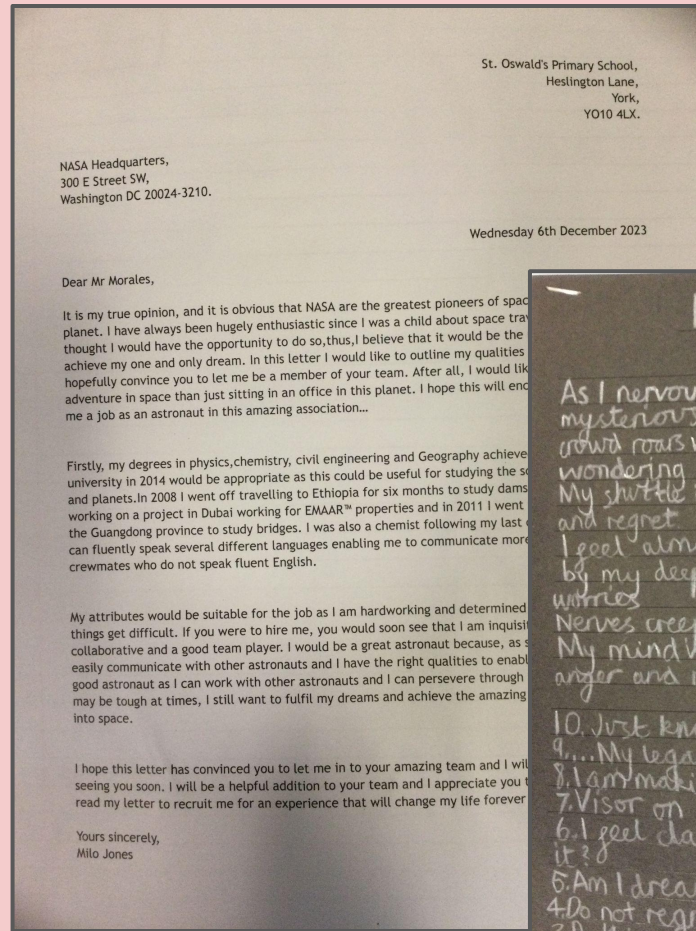 St. Oswald's Primary School,
Heslington Lane,
York,
YO10 4LX.
NASA Headquarters,
300 E Street SW,
Washington DC 20024-3210.
Wednesday 6th December 2023
Dear Mr Morales,
It is my true opinion, and it is obvious that NASA are the greatest pioneers of
planet. I have always been hugely enthusiastic since I was a child about space
thought I would have the opportunity to do so,thus,I believe that it would be the
achieve my one and only dream. In this letter I would like to outline my qualities
hopefully convince you to let me be a member of your team. After all, I would
adventure in space than just sitting in an office in this planet. I hope this will
me a job as an astronaut in this amazing association...
Firstly, my degrees in physics,chemistry, civil engineering and Geography
university in 2014 would be appropriate as this could be useful for studying the
and planets.In 2008 I went off travelling to Ethiopia for six months to study dams
working on a project in Dubai working for EMAAR™ properties and in 2011 I went
the Guangdong province to study bridges. I was also a chemist following my last
can fluently speak several different languages enabling me to communicate more
crewmates who do not speak fluent English.
My attributes would be suitable for the job as I am hardworking and determined
things get difficult. If you were to hire me, you would soon see that I am
collaborative and a good team player. I would be a great astronaut because, as
easily communicate with other astronauts and I have the right qualities to
good astronaut as I can work with other astronauts and I can persevere through
may be tough at times, I still want to fulfil my dreams and achieve the amazing
into space.
I hope this letter has convinced you to let me in to your amazing team and I
seeing you soon. I will be a helpful addition to your team and I appreciate you
read my letter to recruit me for an experience that will change my life forever
Yours sincerely,
Milo Jones
As I
crowd roars
wondering
My shuttle
and regret
I feel
by my
worries
Nerves
My mind
anger and
10. Just
9....My
8.I am
7.Visor on
6.I feel
it?
5.Am I
4.Do not